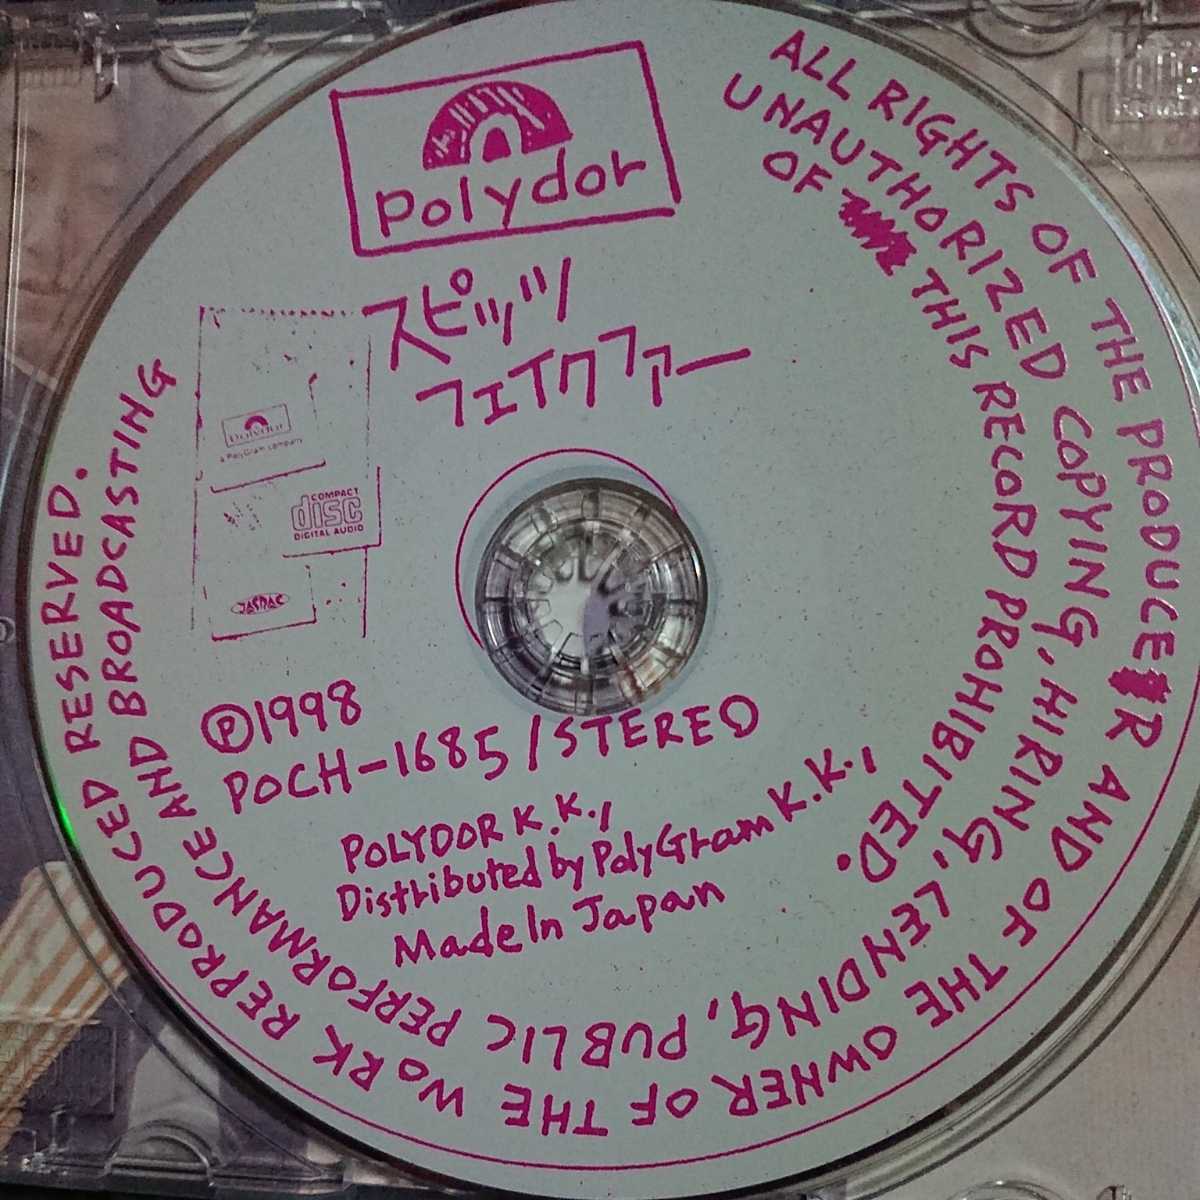 polydor
スピッツ
フェイクファー
polydor
a PolyGram company
COMPACT
disc
DIGITAL AUDIO
JASRAC
Ⓟ1998
POCH-1685/STEREO
POLYDOR K.K.,
Distributed by PolyGram K.K.,
Made In Japan
ALL RIGHTS OF THE PRODUCER AND OF THE OWNER OF THE WORK REPRODUCED RESERVED.
UNAUTHORIZED COPYING, HIRING, LENDING, PUBLIC PERFORMANCE AND BROADCASTING
OF THIS RECORD PROHIBITED.